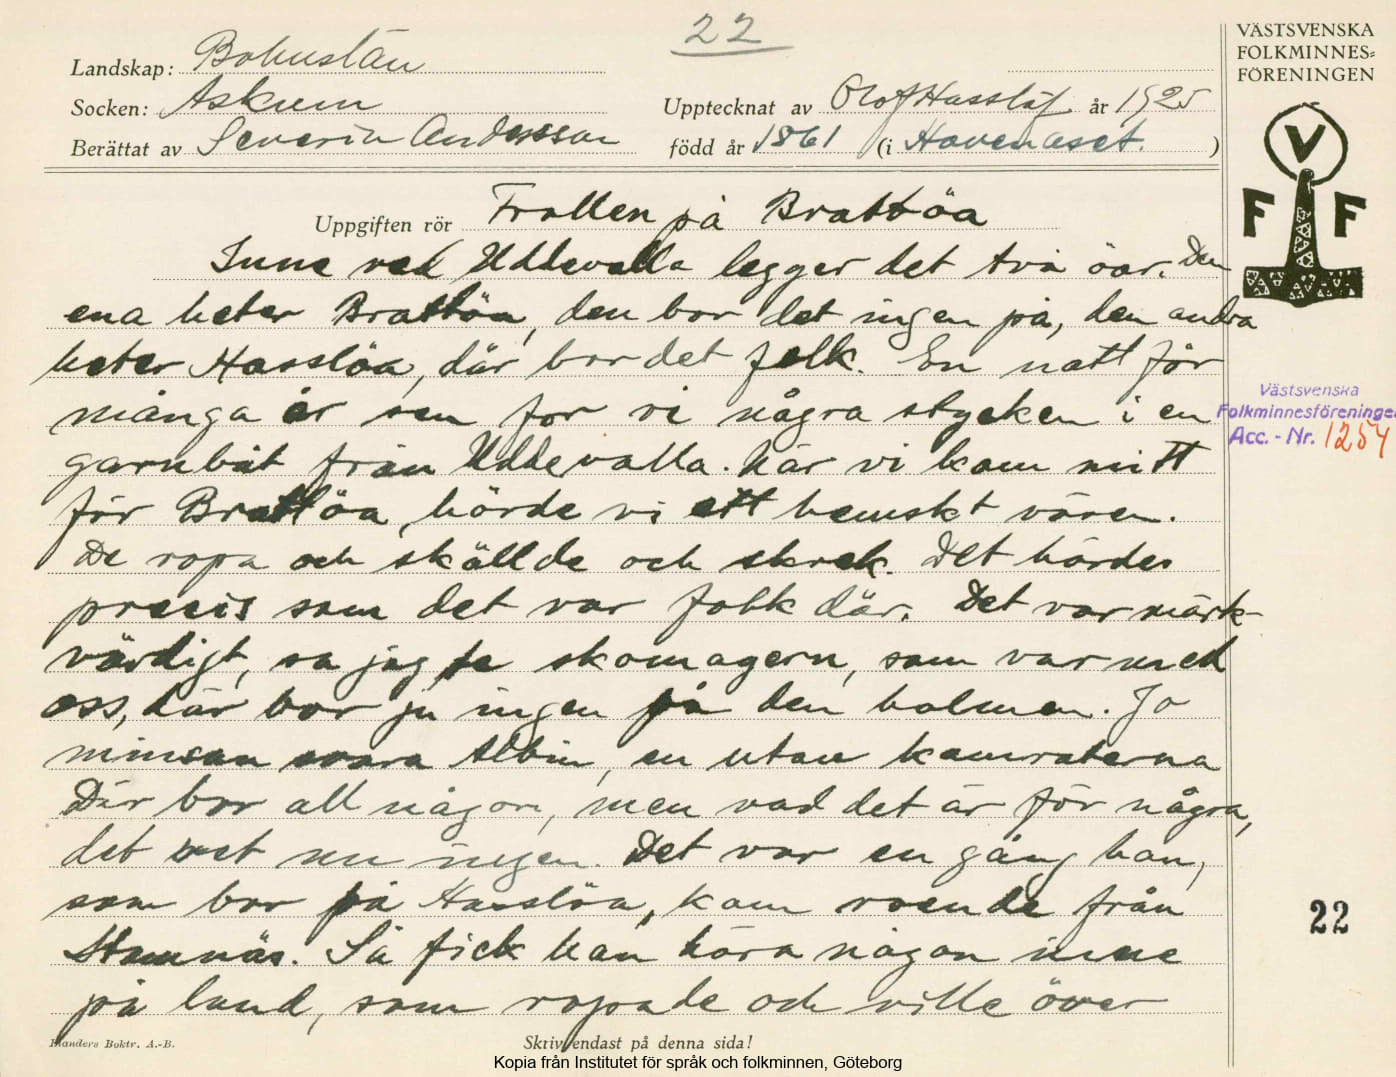 22
VÄSTSVENSKA
FOLKMINNES=
FÖRENINGEN
Landskap: Bohuslän
Socken: Askum
Upptecknat av Olof Hasslöf år 1925
Berättat av Severin Andersson
född år 1861 (i Hovenaset.)
V
F F
Uppgiften rör Trollen på Brattöa
Inne ved Uddevalla legger det två öar. Den
ena heter Brattöa, den bor det ingen på, den andra
heter Hasslöa, där bor det folk. En natt för
många år sen for vi några stycken i en
garnbåt från Uddevalla. När vi kom mitt
för Brattöa, hörde vi ett hemskt väsen.
De ropa och skällde och skrek. Det hördes
precis som det var folk där. Det var märk-
värdigt, sa jag te skomagern, som var med
oss, där bor ju ingen på den holmen. Jo
minsan svara Albin, en utav kamraterna
Där bor all någon, men vad det är för några,
det vet nu ingen. Det var en gång han,
som bor på Hasslöa, kom roende från
Stumnäs. Så fick han höra någon inne
på land, som ropade och ville över
Västsvenska
Folkminnesföreningen
Acc. - Nr. 1254
22
Blanders Boktr. A.-B.
Skriv endast på denna sida!
Kopia från Institutet för språk och folkminnen, Göteborg